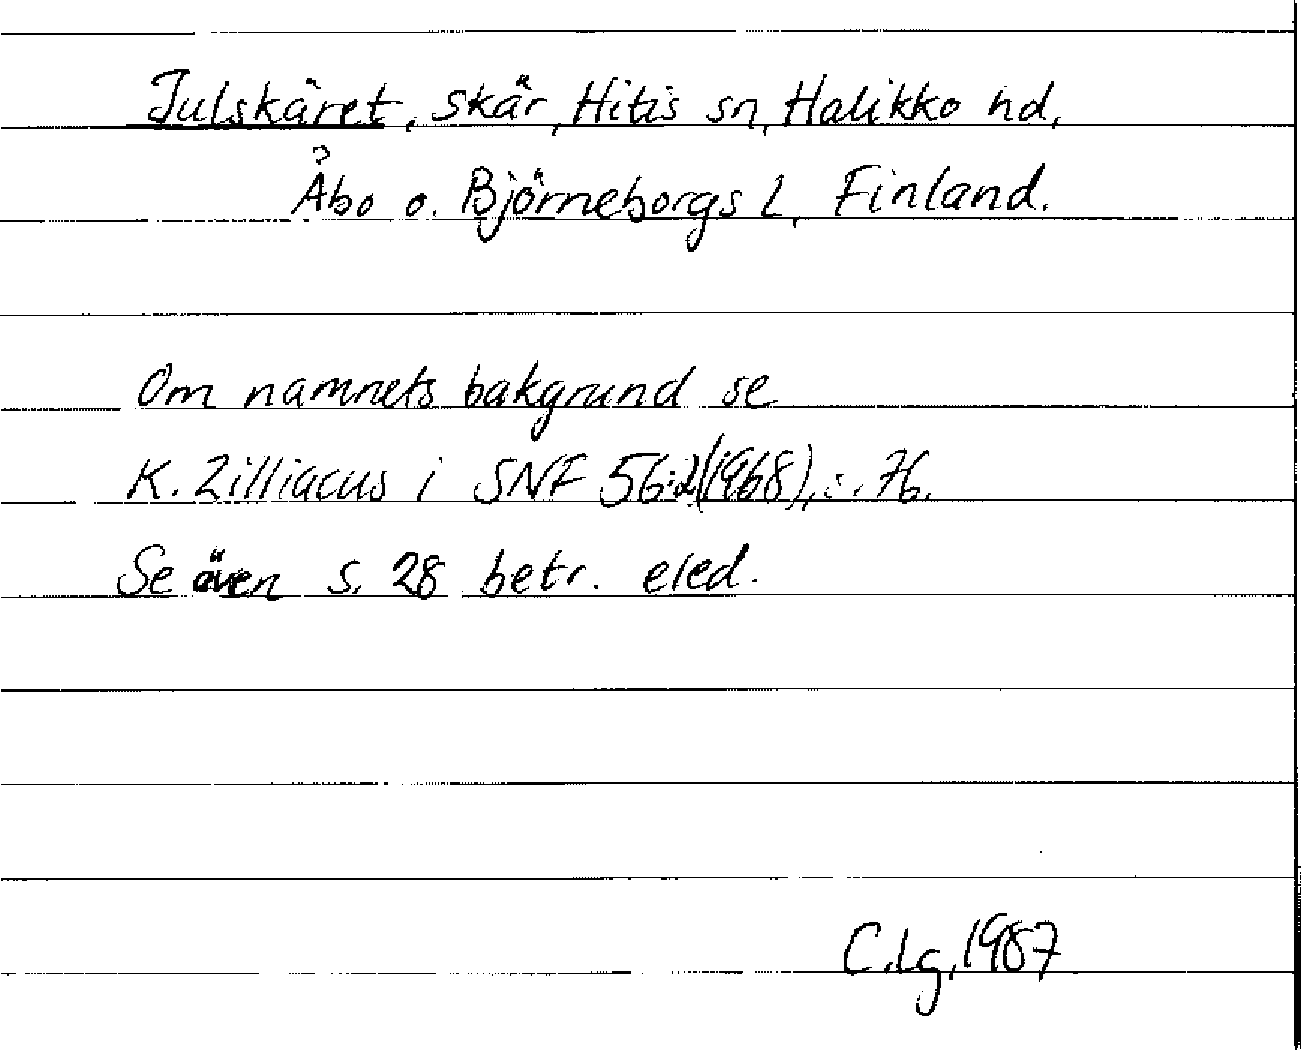 Julskäret, skär, Hitis sn, Halikko hd,
Åbo o. Björneborgs L, Finland.
Om namnets bakgrund se
K. Zilliacus i SNF 56:2(1968), s. 76.
Se även s. 28 betr. eled.
C.Lg, 1987